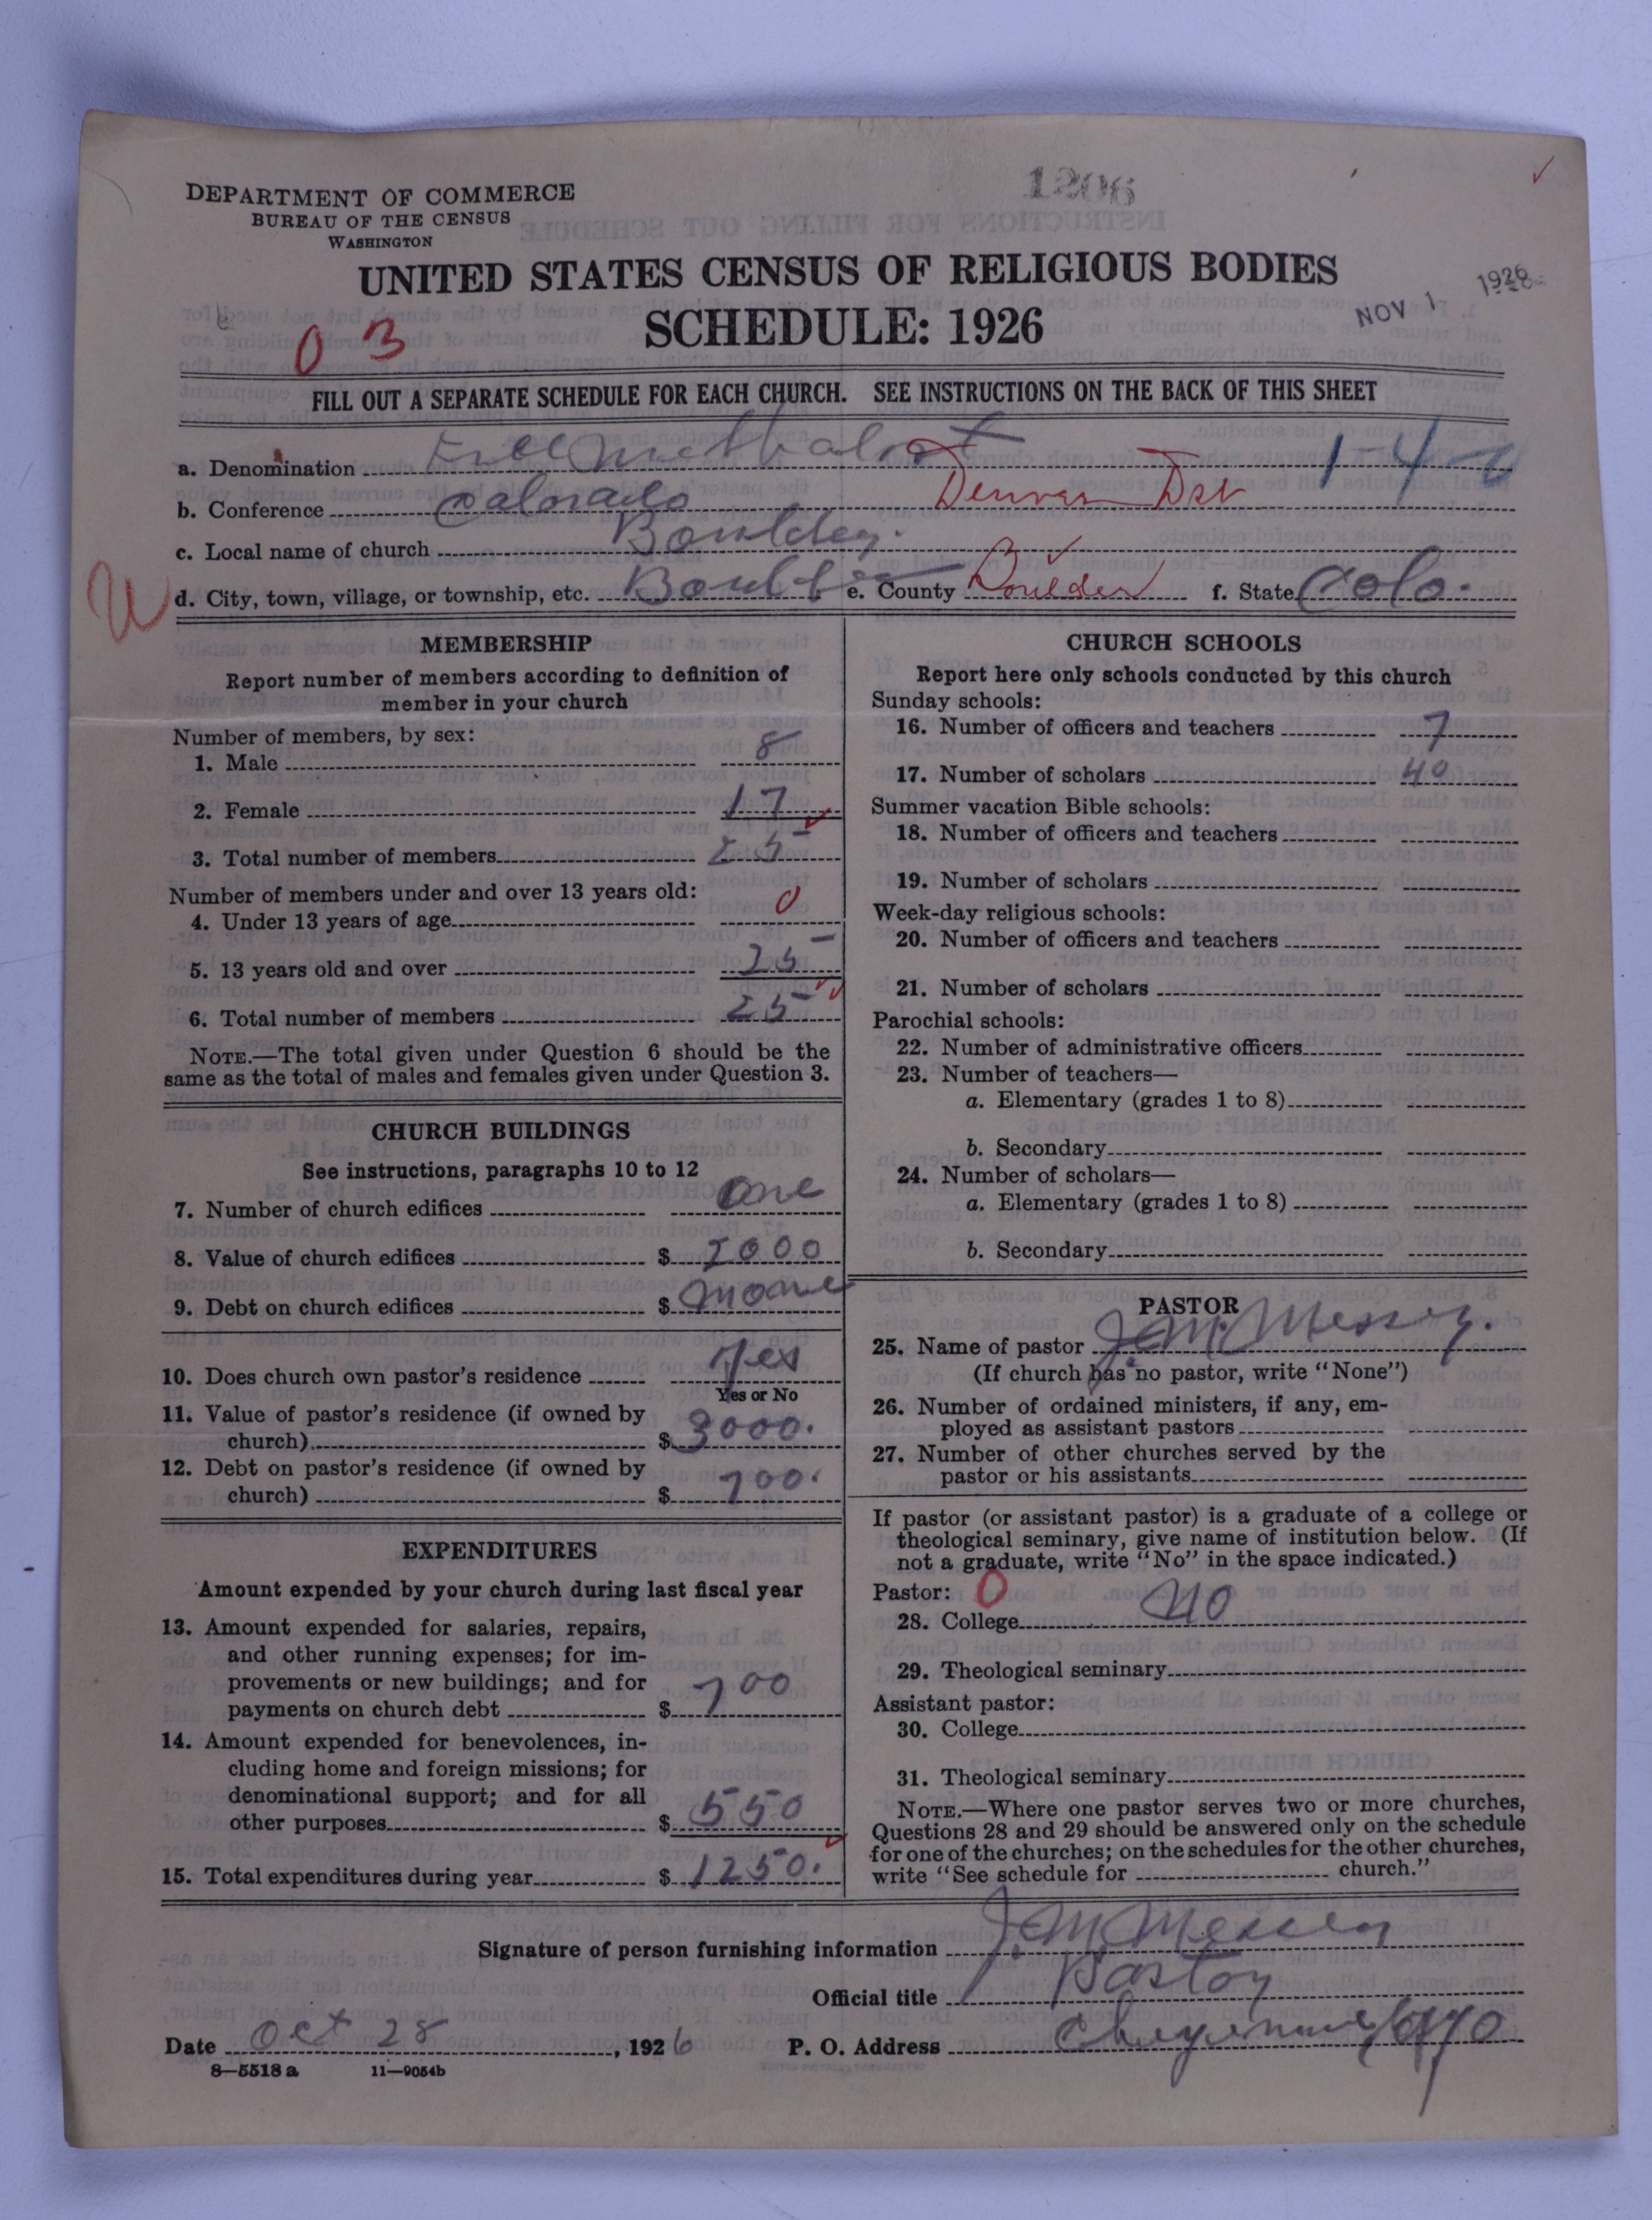 1206
DEPARTMENT OF COMMERCE
BUREAU OF THE CENSUS
WASHINGTON
UNITED STATES CENSUS OF RELIGIOUS BODIES
SCHEDULE: 1926
NOV 1 1926
0 3
FILL OUT A SEPARATE SCHEDULE FOR EACH CHURCH. SEE INSTRUCTIONS ON THE BACK OF THIS SHEET
a. Denomination Free Methodist 1-4-
b. Conference Colorado Denver Dist
c. Local name of church Boulder.
d. City, town, village, or township, etc. Boulder e. County Boulder f. State Colo.
MEMBERSHIP
Report number of members according to definition of
member in your church
Number of members, by sex:
1. Male 8
2. Female 17
3. Total number of members 25
Number of members under and over 13 years old:
4. Under 13 years of age 0
5. 13 years old and over 25
6. Total number of members 25
NOTE.—The total given under Question 6 should be the
same as the total of males and females given under Question 3.
CHURCH BUILDINGS
See instructions, paragraphs 10 to 12
7. Number of church edifices one
8. Value of church edifices $ 2000
9. Debt on church edifices $ none
10. Does church own pastor's residence yes
Yes or No
11. Value of pastor's residence (if owned by
church) $ 3000.
12. Debt on pastor's residence (if owned by
church) $ 700.
EXPENDITURES
Amount expended by your church during last fiscal year
13. Amount expended for salaries, repairs,
and other running expenses; for im-
provements or new buildings; and for
payments on church debt $ 700
14. Amount expended for benevolences, in-
cluding home and foreign missions; for
denominational support; and for all
other purposes $ 550
15. Total expenditures during year $ 1250.
CHURCH SCHOOLS
Report here only schools conducted by this church
Sunday schools:
16. Number of officers and teachers 7
17. Number of scholars 40
Summer vacation Bible schools:
18. Number of officers and teachers
19. Number of scholars
Week-day religious schools:
20. Number of officers and teachers
21. Number of scholars
Parochial schools:
22. Number of administrative officers
23. Number of teachers—
a. Elementary (grades 1 to 8)
b. Secondary
24. Number of scholars—
a. Elementary (grades 1 to 8)
b. Secondary
PASTOR
25. Name of pastor J.M. Messer.
(If church has no pastor, write "None")
26. Number of ordained ministers, if any, em-
ployed as assistant pastors
27. Number of other churches served by the
pastor or his assistants
If pastor (or assistant pastor) is a graduate of a college or
theological seminary, give name of institution below. (If
not a graduate, write "No" in the space indicated.)
Pastor: 0
28. College no
29. Theological seminary
Assistant pastor:
30. College
31. Theological seminary
NOTE.—Where one pastor serves two or more churches,
Questions 28 and 29 should be answered only on the schedule
for one of the churches; on the schedules for the other churches,
write "See schedule for church."
Signature of person furnishing information J.M. Messer
Official title Pastor
Date Oct 28, 1926 P. O. Address Cheyenne Wyo
8—5518 a 11—9054b